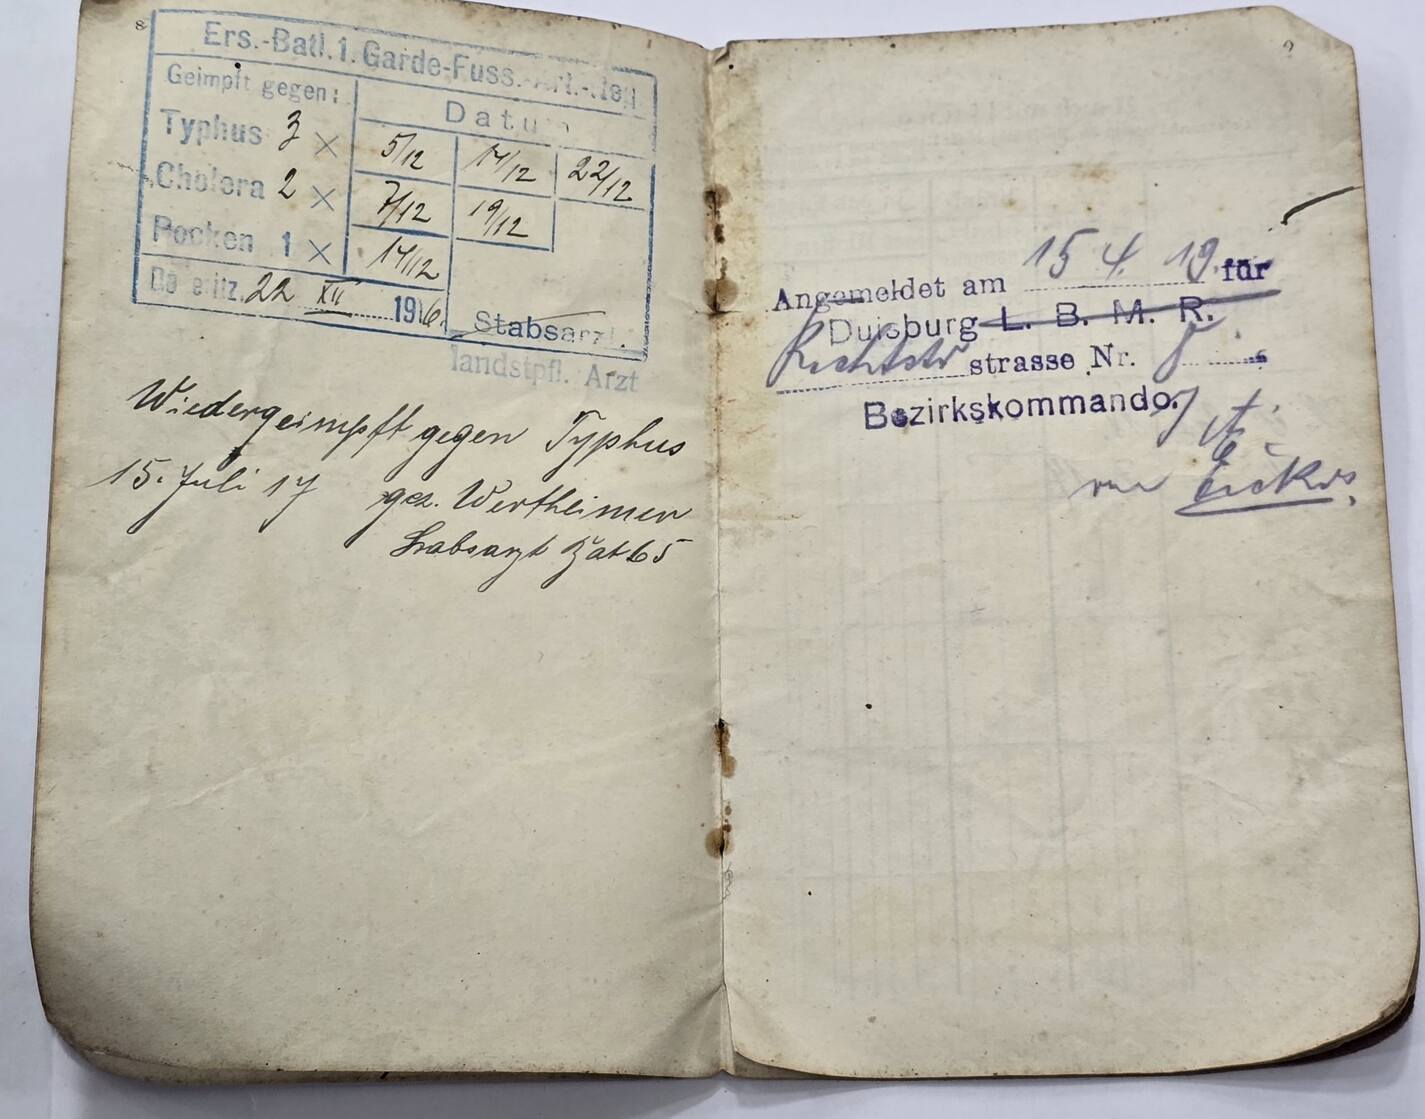 8
Ers.-Batl. 1. Garde-Fuss.-Art.-Reg
Geimpft gegen: Datum
Typhus 3 × 5/12 14/12 22/12
Cholera 2 × 7/12 19/12
Pocken 1 × 14/12
Döberitz, 22 XII 1916.
Stabsarzt.
landstpfl. Arzt
Wiedergeimpft gegen Typhus
15. Juli 17 gez. Wertheimer
Stabsarzt
9
Angemeldet am 15 4. 19. für
Duisburg L. B. M. R.
strasse Nr. 8
Bezirkskommando.